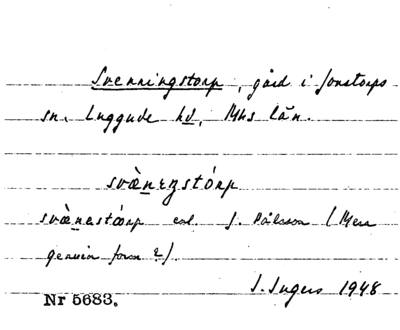 Svenningstorp, gård i Jonstorps
sn. Luggude hd, Mhs län.
svὰnɪŋstórp
svὰnastórp enl. J. Pålsson (Mera
genuin form?).
I. Ingers 1948
Nr 5683.